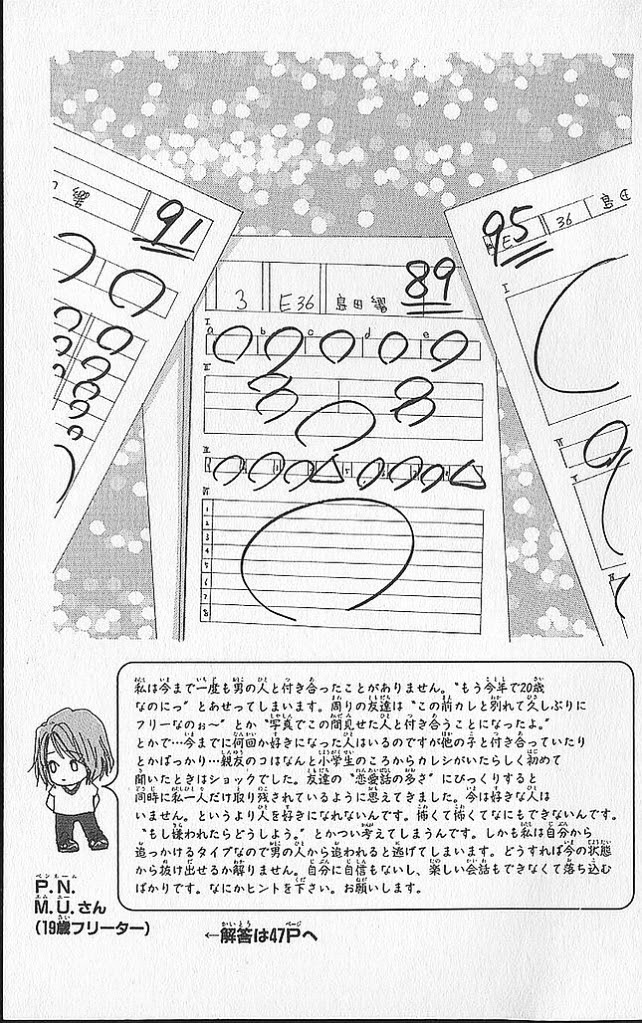 91
95
E
36
島
3
E36
島田
89
I
a b c d e
II
III
IV
1
2
3
4
5
6
7
8
私は今まで一度も男の人と付き合ったことがありません。"もう今年で20歳
なのにっ"とあせってしまいます。周りの友達は"この前カレと別れて久しぶりに
フリーなのぉ〜"とか"写真でこの間見せた人と付き合うことになったよ。"
とかで…今までに何回か好きになった人はいるのですが他の子と付き合っていたり
とかばっかり…親友のコはなんと小学生のころからカレシがいたらしく初めて
聞いたときはショックでした。友達の"恋愛話の多さ"にびっくりすると
同時に私一人だけ取り残されているように思えてきました。今は好きな人は
いません。というより人を好きになれないんです。怖くて怖くてなにもできないんです。
"もし嫌われたらどうしよう。"とかつい考えてしまうんです。しかも私は自分から
追っかけるタイプなので男の人から追われると逃げてしまいます。どうすれば今の状態
から抜け出せるか解りません。自分に自信もないし、楽しい会話もできなくて落ち込む
ばかりです。なにかヒントを下さい。お願いします。
P.N.
M.U.さん
(19歳フリーター)
←解答は47Pへ